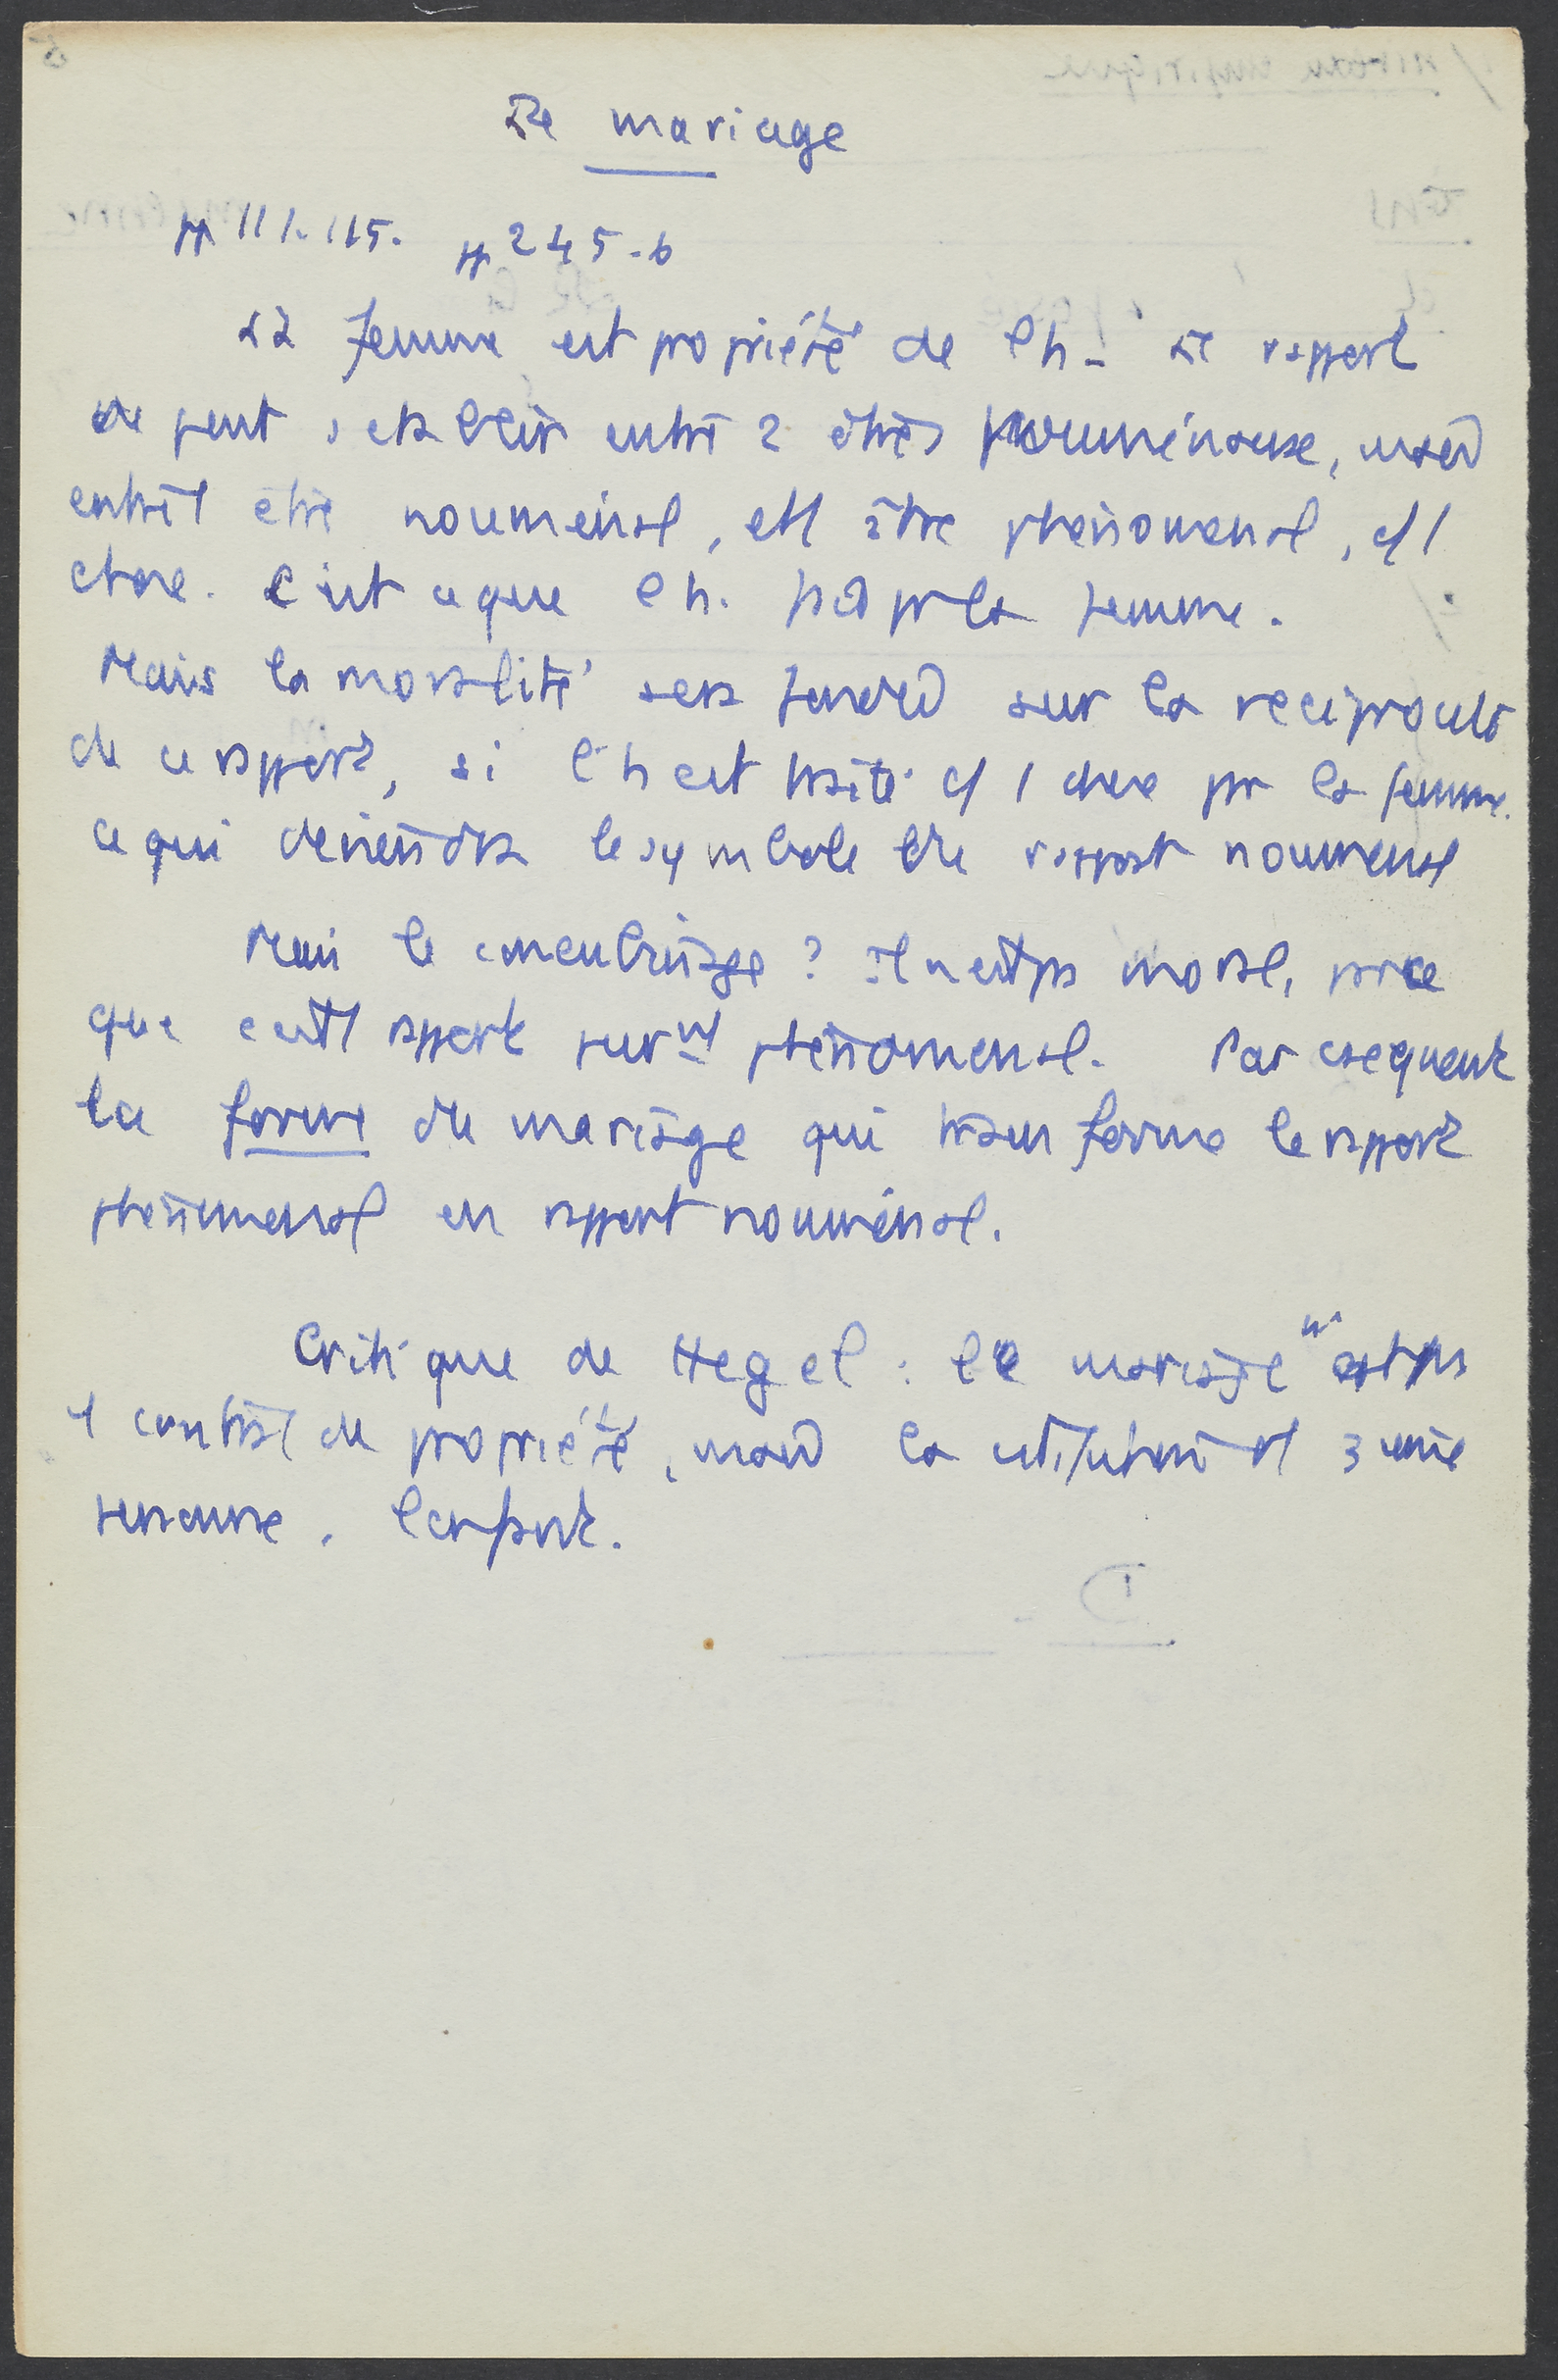 Le mariage
pp 111-115. pp 245-6
La femme est propriété de l'h. Le rapport
ne peut s'établir entre 2 êtres nouménaux, mais
entre 1 être nouménal, et 1 être phénoménal, c/ 1
chose. C'est ce que l'h. fait pr la femme.
Mais la moralité sera fondée sur la réciprocité
de ce rapport, si l'h est traité c/ 1 chose par la femme.
ce qui deviendra le symbole du rapport nouménal
Mais le concubinage ? Il n'est pas moral, parce
que c'est 1 rapport purmt phénoménal. Par cséquent
la forme du mariage qui transforme le rapport
phénoménal en rapport nouménal.
Critique de Hegel : le mariage n'est pas
1 contrat de propriété, mais la cstitution d'1 3eme
personne, l'enfant.